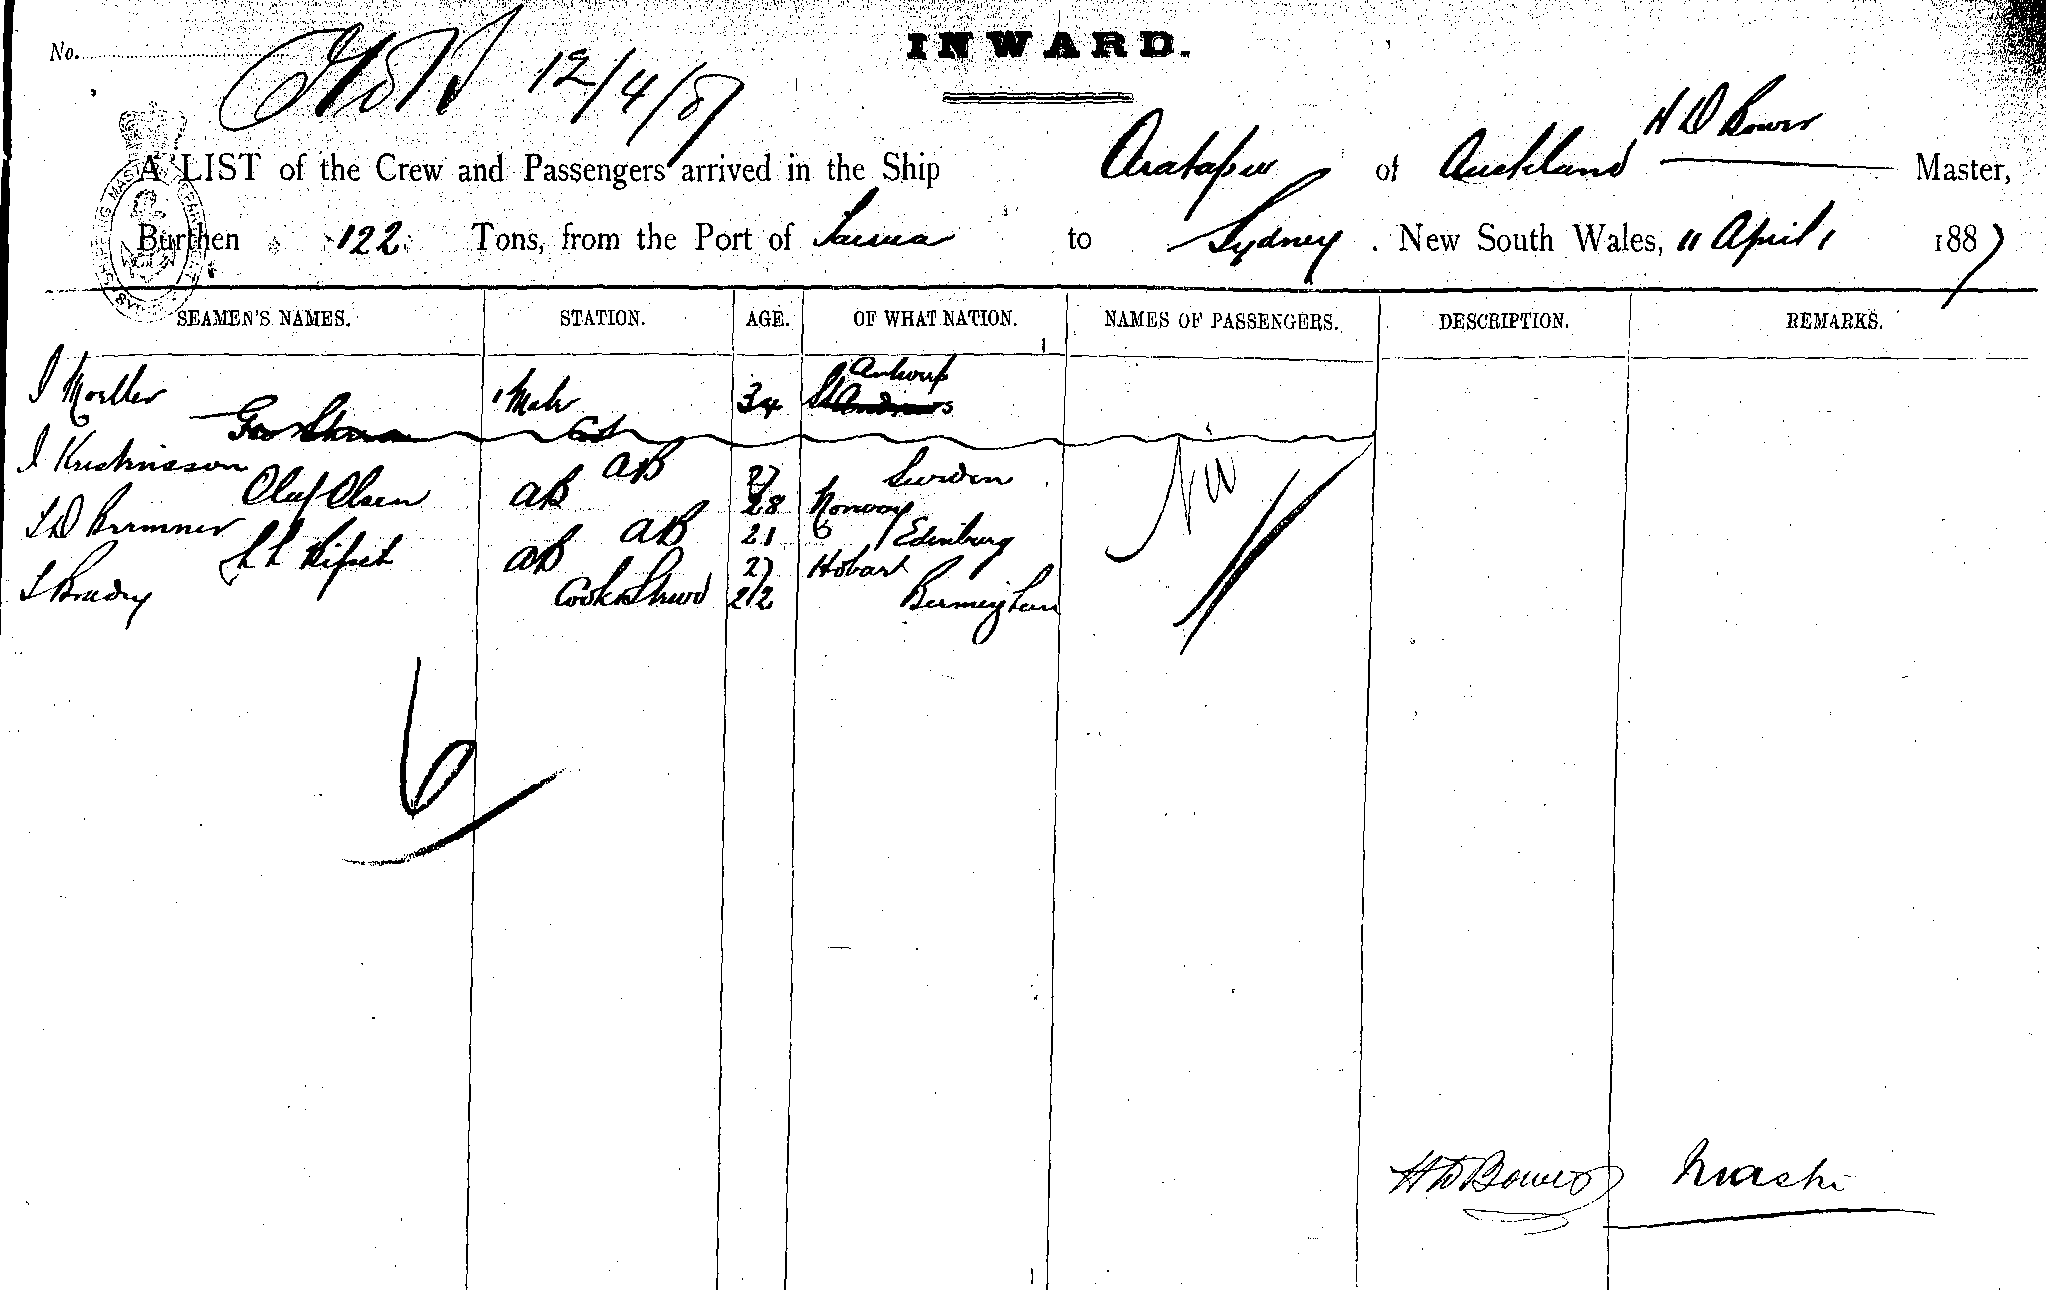 No.
12/4/87
INWARD.
H D Bower
A LIST of the Crew and Passengers arrived in the Ship Aratapu of Auckland Master,
Burthen 122 Tons, from the Port of to Sydney. New South Wales, 11 April 1887
SEAMEN'S NAMES. STATION. AGE. OF WHAT NATION. NAMES OF PASSENGERS. DESCRIPTION. REMARKS.
Antwerp
J Moeller Mate 34 St Andrews
Geo
J Kristinsson AB 27 Sweden
Nil
Olaf Olsen AB 28 Norway
AB 21 Edinburg
AB 27 Hobart
J Brady Cook & Stewd 22
6
H D Bower Master